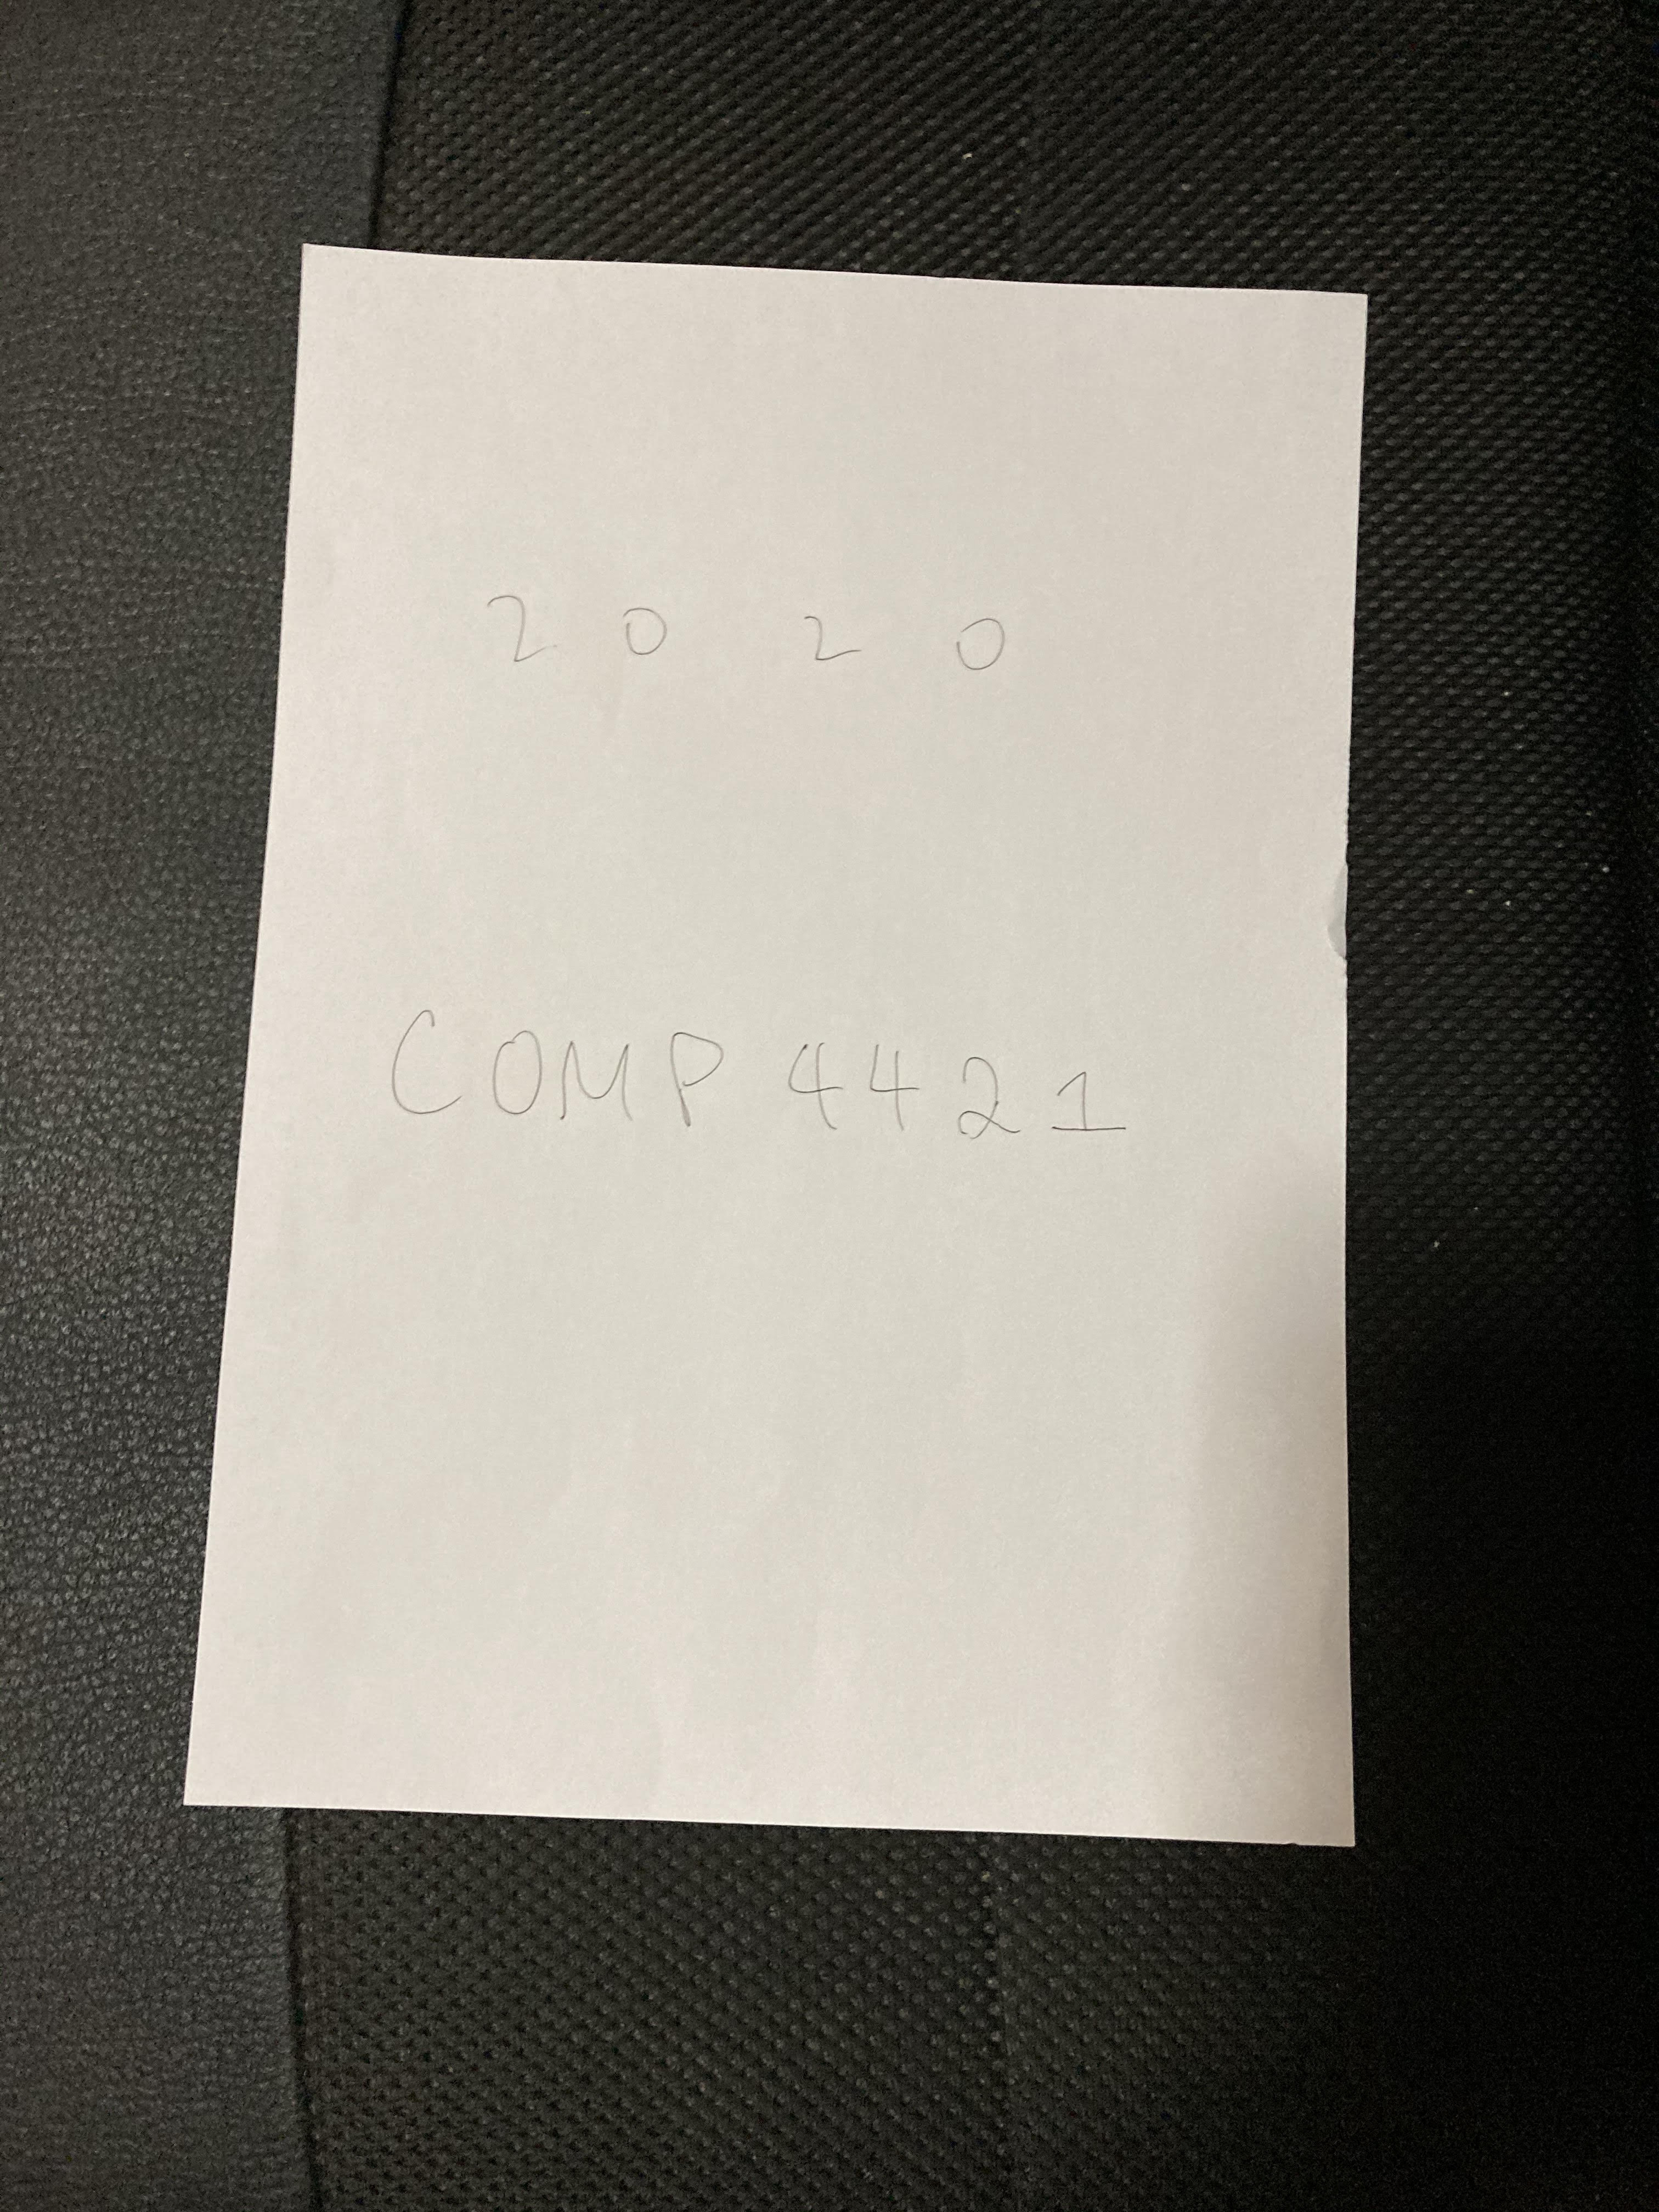 2020
COMP 4421